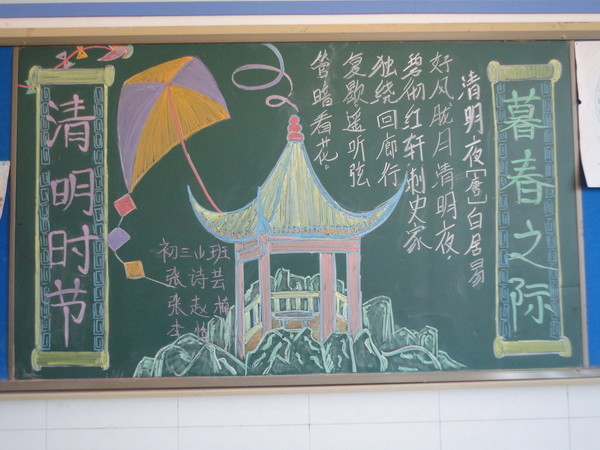 暮春之际
清明夜[唐]白居易
好风胧月清明夜。
碧彻红轩刺史家
独绕回廊行
复歇遥听弦
管暗看花。
清明时节
初三 班
张诗芸
张赵
李怡